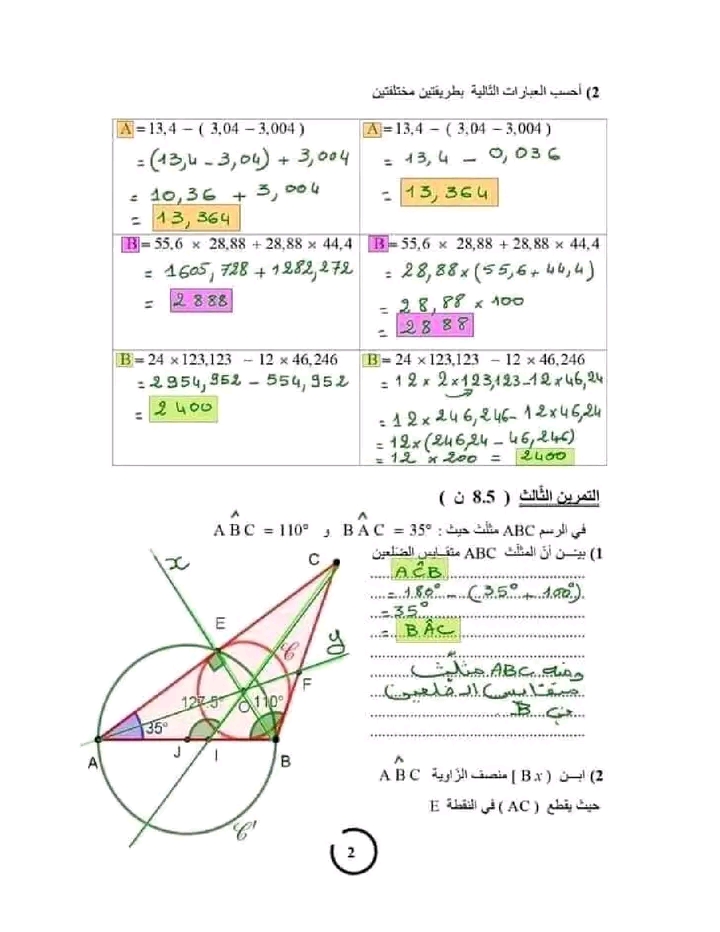 2) أحسب العبارات التالية بطريقتين مختلفتين
A = 13,4 − ( 3,04 − 3,004 )
= (13,4 − 3,04) + 3,004
= 10,36 + 3,004
= 13,364
A = 13,4 − ( 3,04 − 3,004 )
= 13,4 − 0,036
= 13,364
B = 55,6 × 28,88 + 28,88 × 44,4
= 1605,728 + 1282,272
= 2888
B = 55,6 × 28,88 + 28,88 × 44,4
= 28,88 × (55,6 + 44,4)
= 28,88 × 100
= 2888
B = 24 × 123,123 − 12 × 46,246
= 2954,952 − 554,952
= 2400
B = 24 × 123,123 − 12 × 46,246
= 12 × 2 × 123,123 − 12 × 46,24
= 12 × 246,246 − 12 × 46,24
= 12 × (246,24 − 46,246)
= 12 × 200 = 2400
التمرين الثالث ( 8.5 ن )
في الرسم ABC مثلث حيث : BÂC = 35° و AB̂C = 110°
1) بيــن أنّ المثلّث ABC متقــايس الضلعين
AĈB
= 180° − (35° + 100°)
= 35°
= BÂC
ومنه ABC مثلّث
متقايس الضلعين
في B
2) ابــن [Bx) منصف الزّاوية AB̂C
حيث يقطع (AC) في النقطة E
x
C
E
y
𝒞
F
127.5°
O
110°
35°
A
J
I
B
𝒞'
2